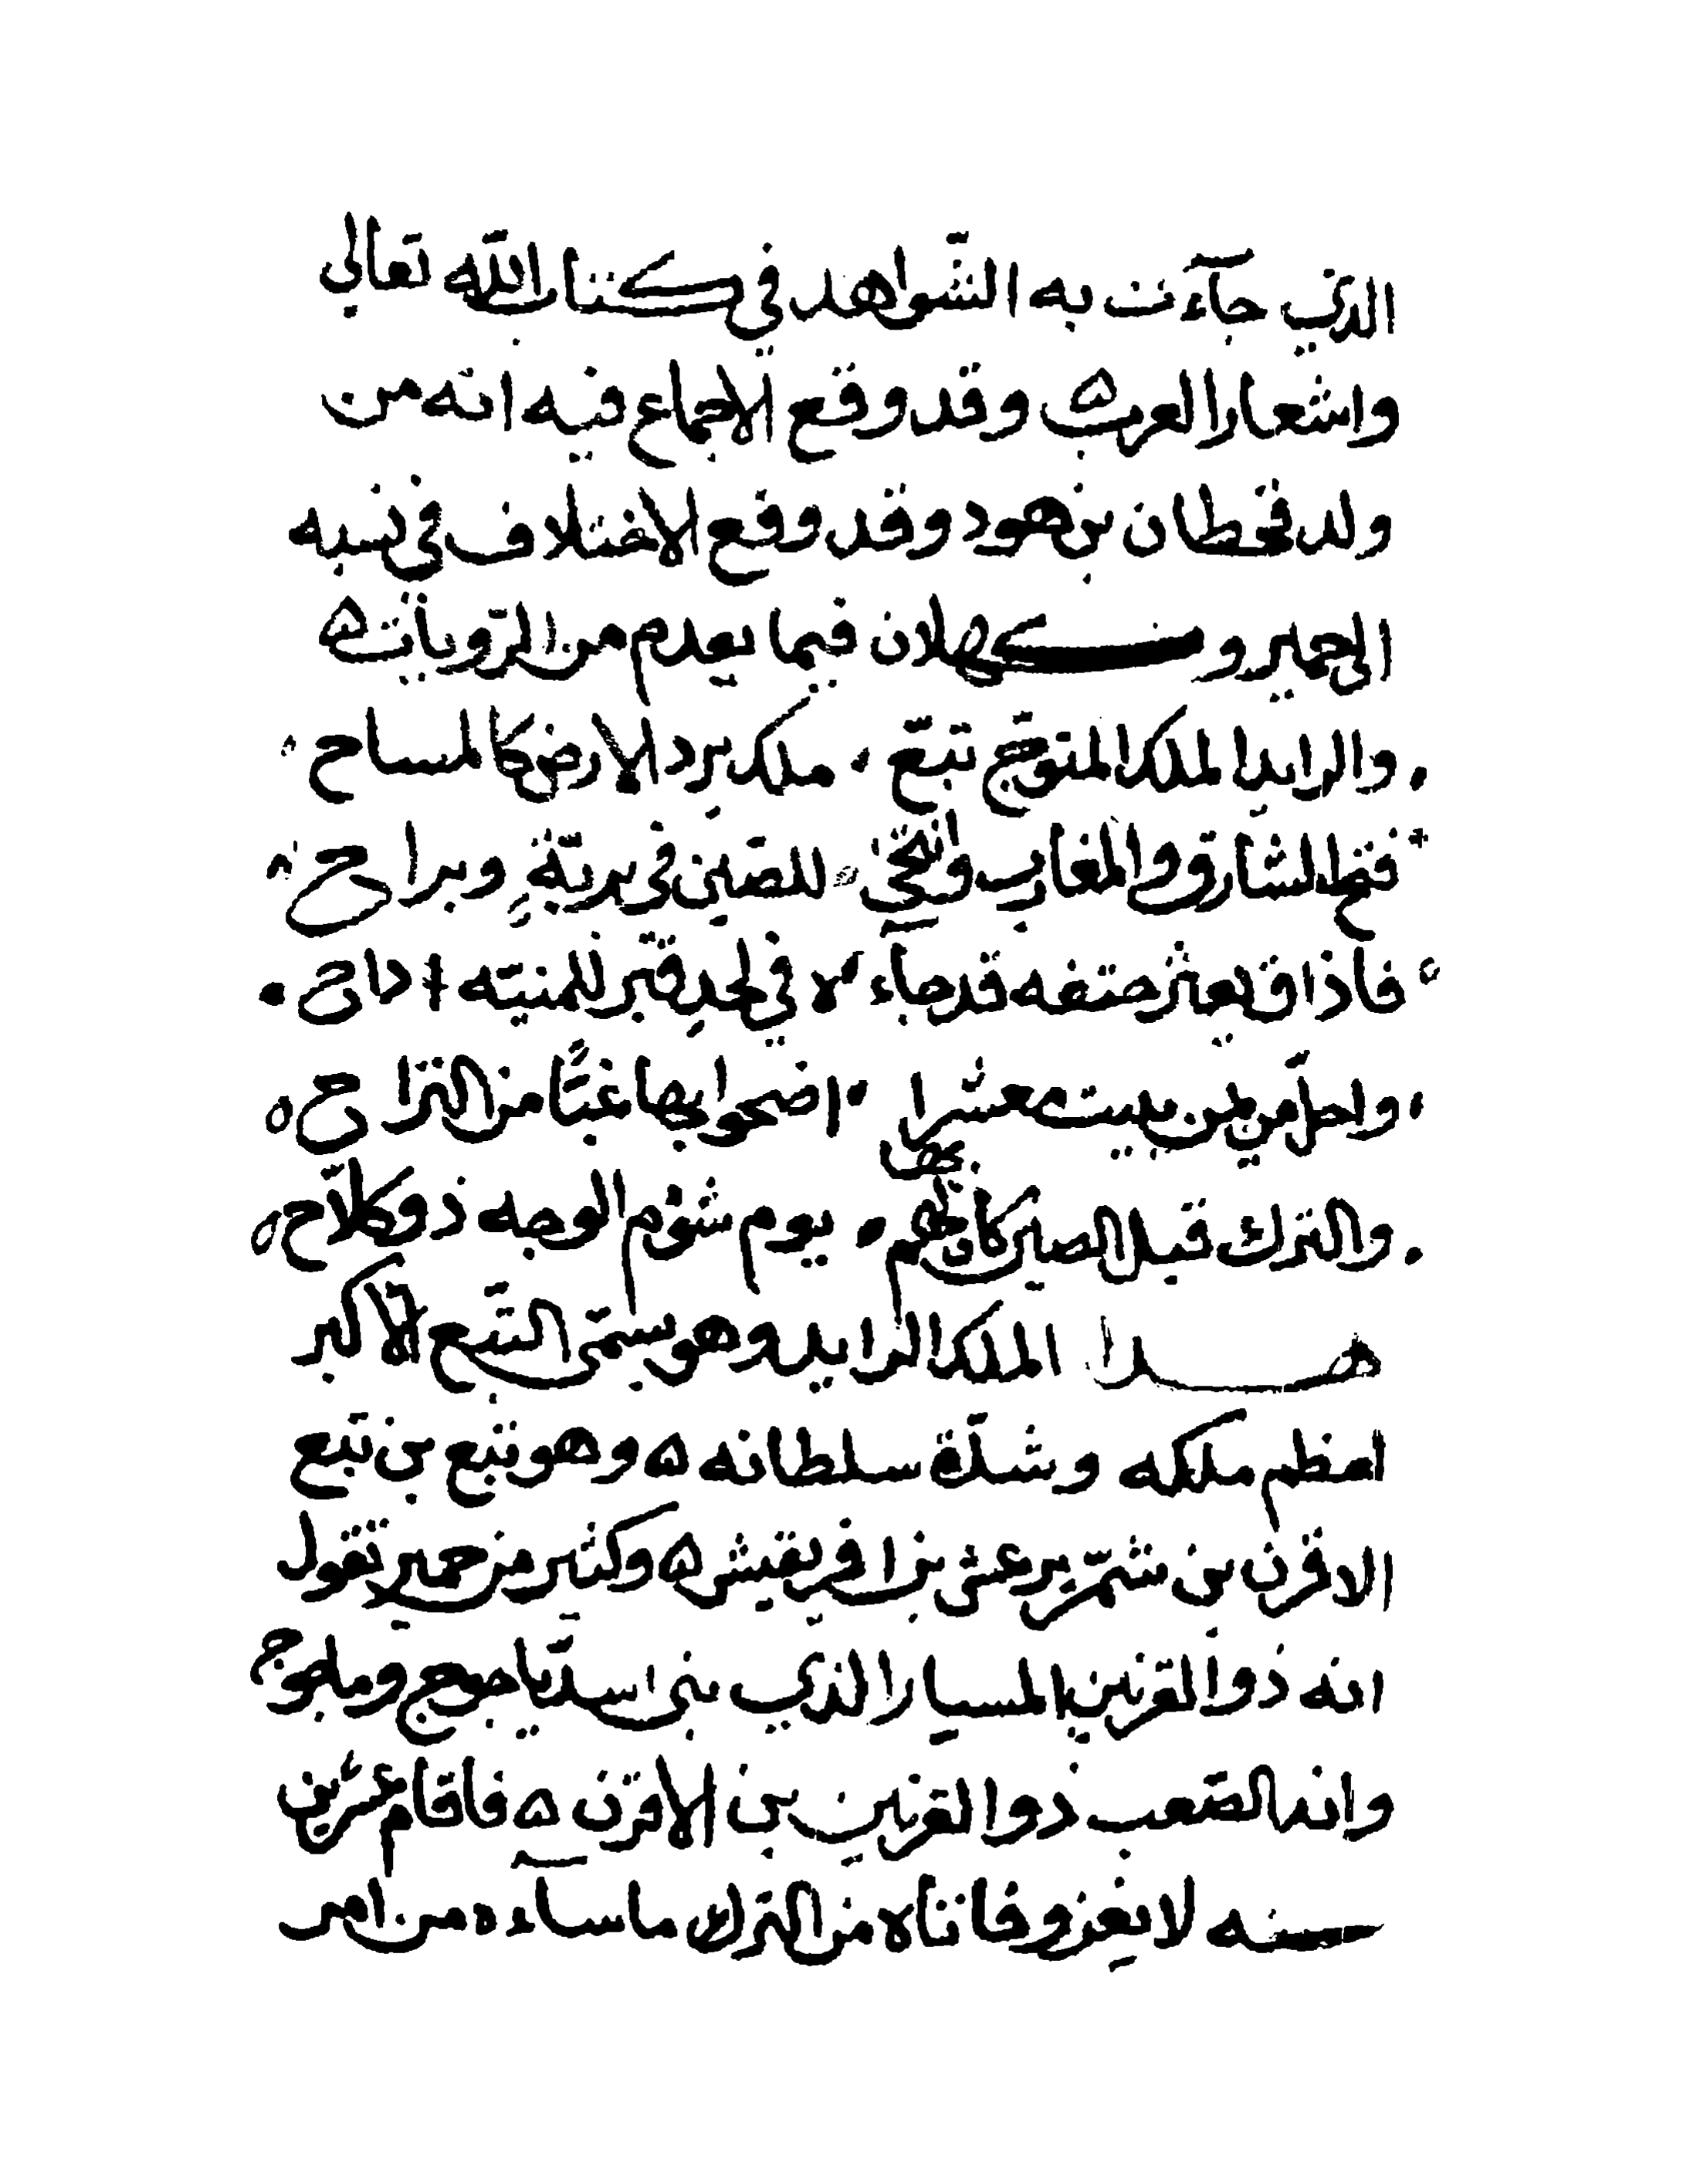 الذي جآءت به الشّواهد في كتاب الله تعالى
واشعار العرب ه وقد وقع الاجماع فيه انه من
ولد قحطان بن هود وقد وقع الاختلاف في نسبه
الى حمير و كهلان فيما يقدم من الرّويات ه
والرايد الملك المتوّج تبّع ملك يرد الارض كالمساح
فتح المشارق والمغارب وانتحى للصّين في بريّةٍ وبراح
فاذاق يعبر حتفه قد جآء لا في لحدِ قبر للمنيّه داح
واحلّ من يمن بتبت معشرا اضحوا بها غبًّا من التراح
والترك قبل الصين كان لهم بها يوم شؤم الوجه ذو كلاّح
هذا الملك الرايد وهو يسمّى التّبّع الاكبر
لعظم ملكه وشدّة سلطانه ه وهو تبع بن تبع
الاقرن بن شمّر يرعش بن افريقيش ه وكثير من حمير تقول
انه ذو القرنين المسيار الذي بنى اسدّ ياجوج وماجوج
وانه الصّعب ذو القرنين بن الاقرن ه فاقام عشرين
سنه لا يغزو فاتاه من الترك ما سآءه من امر